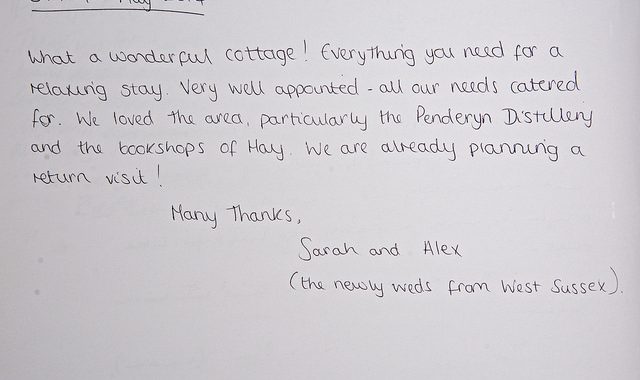 May
What a wonderful cottage! Everything you need for a
relaxing stay. Very well appointed - all our needs catered
for. We loved the area, particularly the Penderyn Distillery
and the bookshops of Hay. We are already planning a
return visit!
Many Thanks,
Sarah and Alex
(the newly weds from West Sussex).